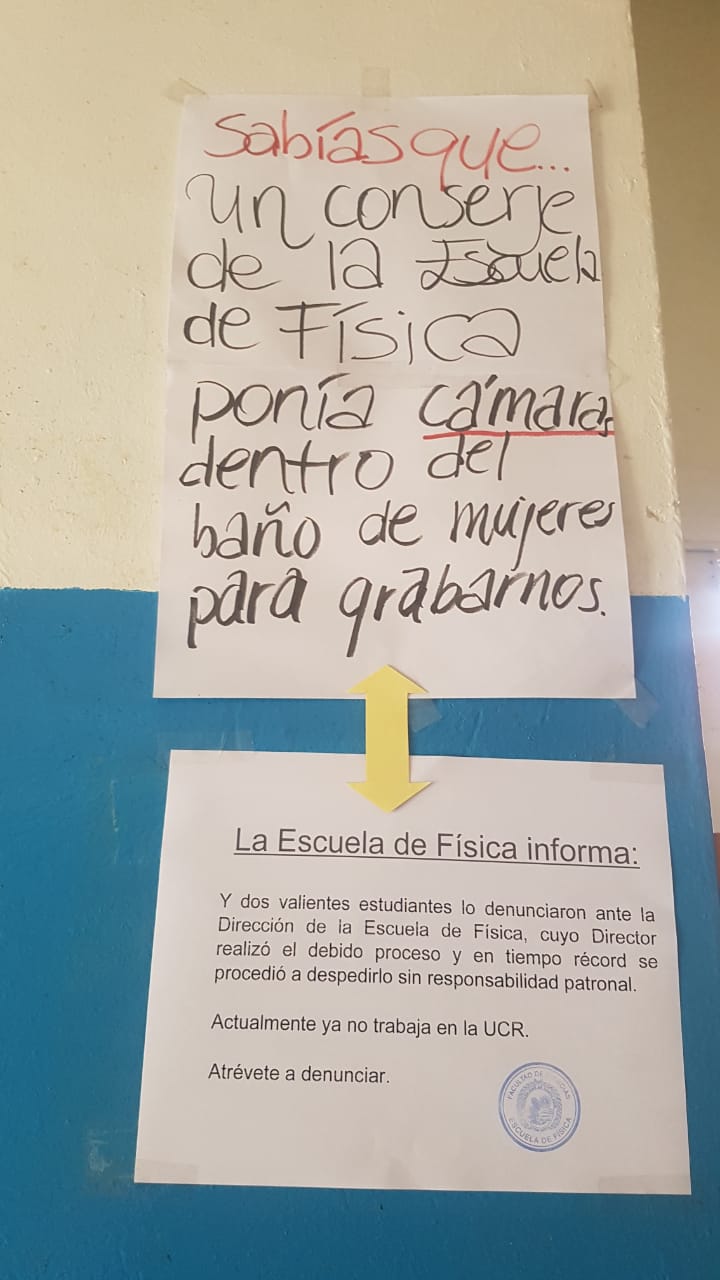 Sabías que...
un conserje
de la Escuela
de Física
ponía cámaras
dentro del
baño de mujeres
para grabarnos.
La Escuela de Física informa:
Y dos valientes estudiantes lo denunciaron ante la
Dirección de la Escuela de Física, cuyo Director
realizó el debido proceso y en tiempo récord se
procedió a despedirlo sin responsabilidad patronal.
Actualmente ya no trabaja en la UCR.
Atrévete a denunciar.
FACULTAD DE
ESCUELA DE FÍSICA